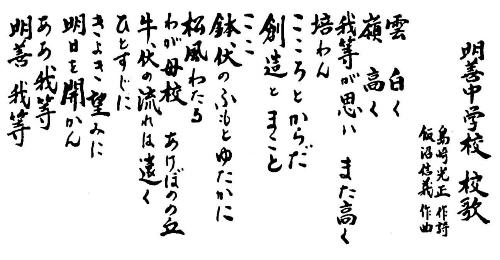 明善中学校 校歌
島崎光正 作詩
飯沼信義 作曲
雲 白く
嶺 高く
我等が思い また高く
培わん
こころとからだ
創造と まこと
ここ
鉢伏のふもとゆたかに
松風わたる
わが母校 あけぼのの丘
牛伏の流れは遠く
ひとすじに
きよき望みに
明日を開かん
ああ、我等
明善 我等